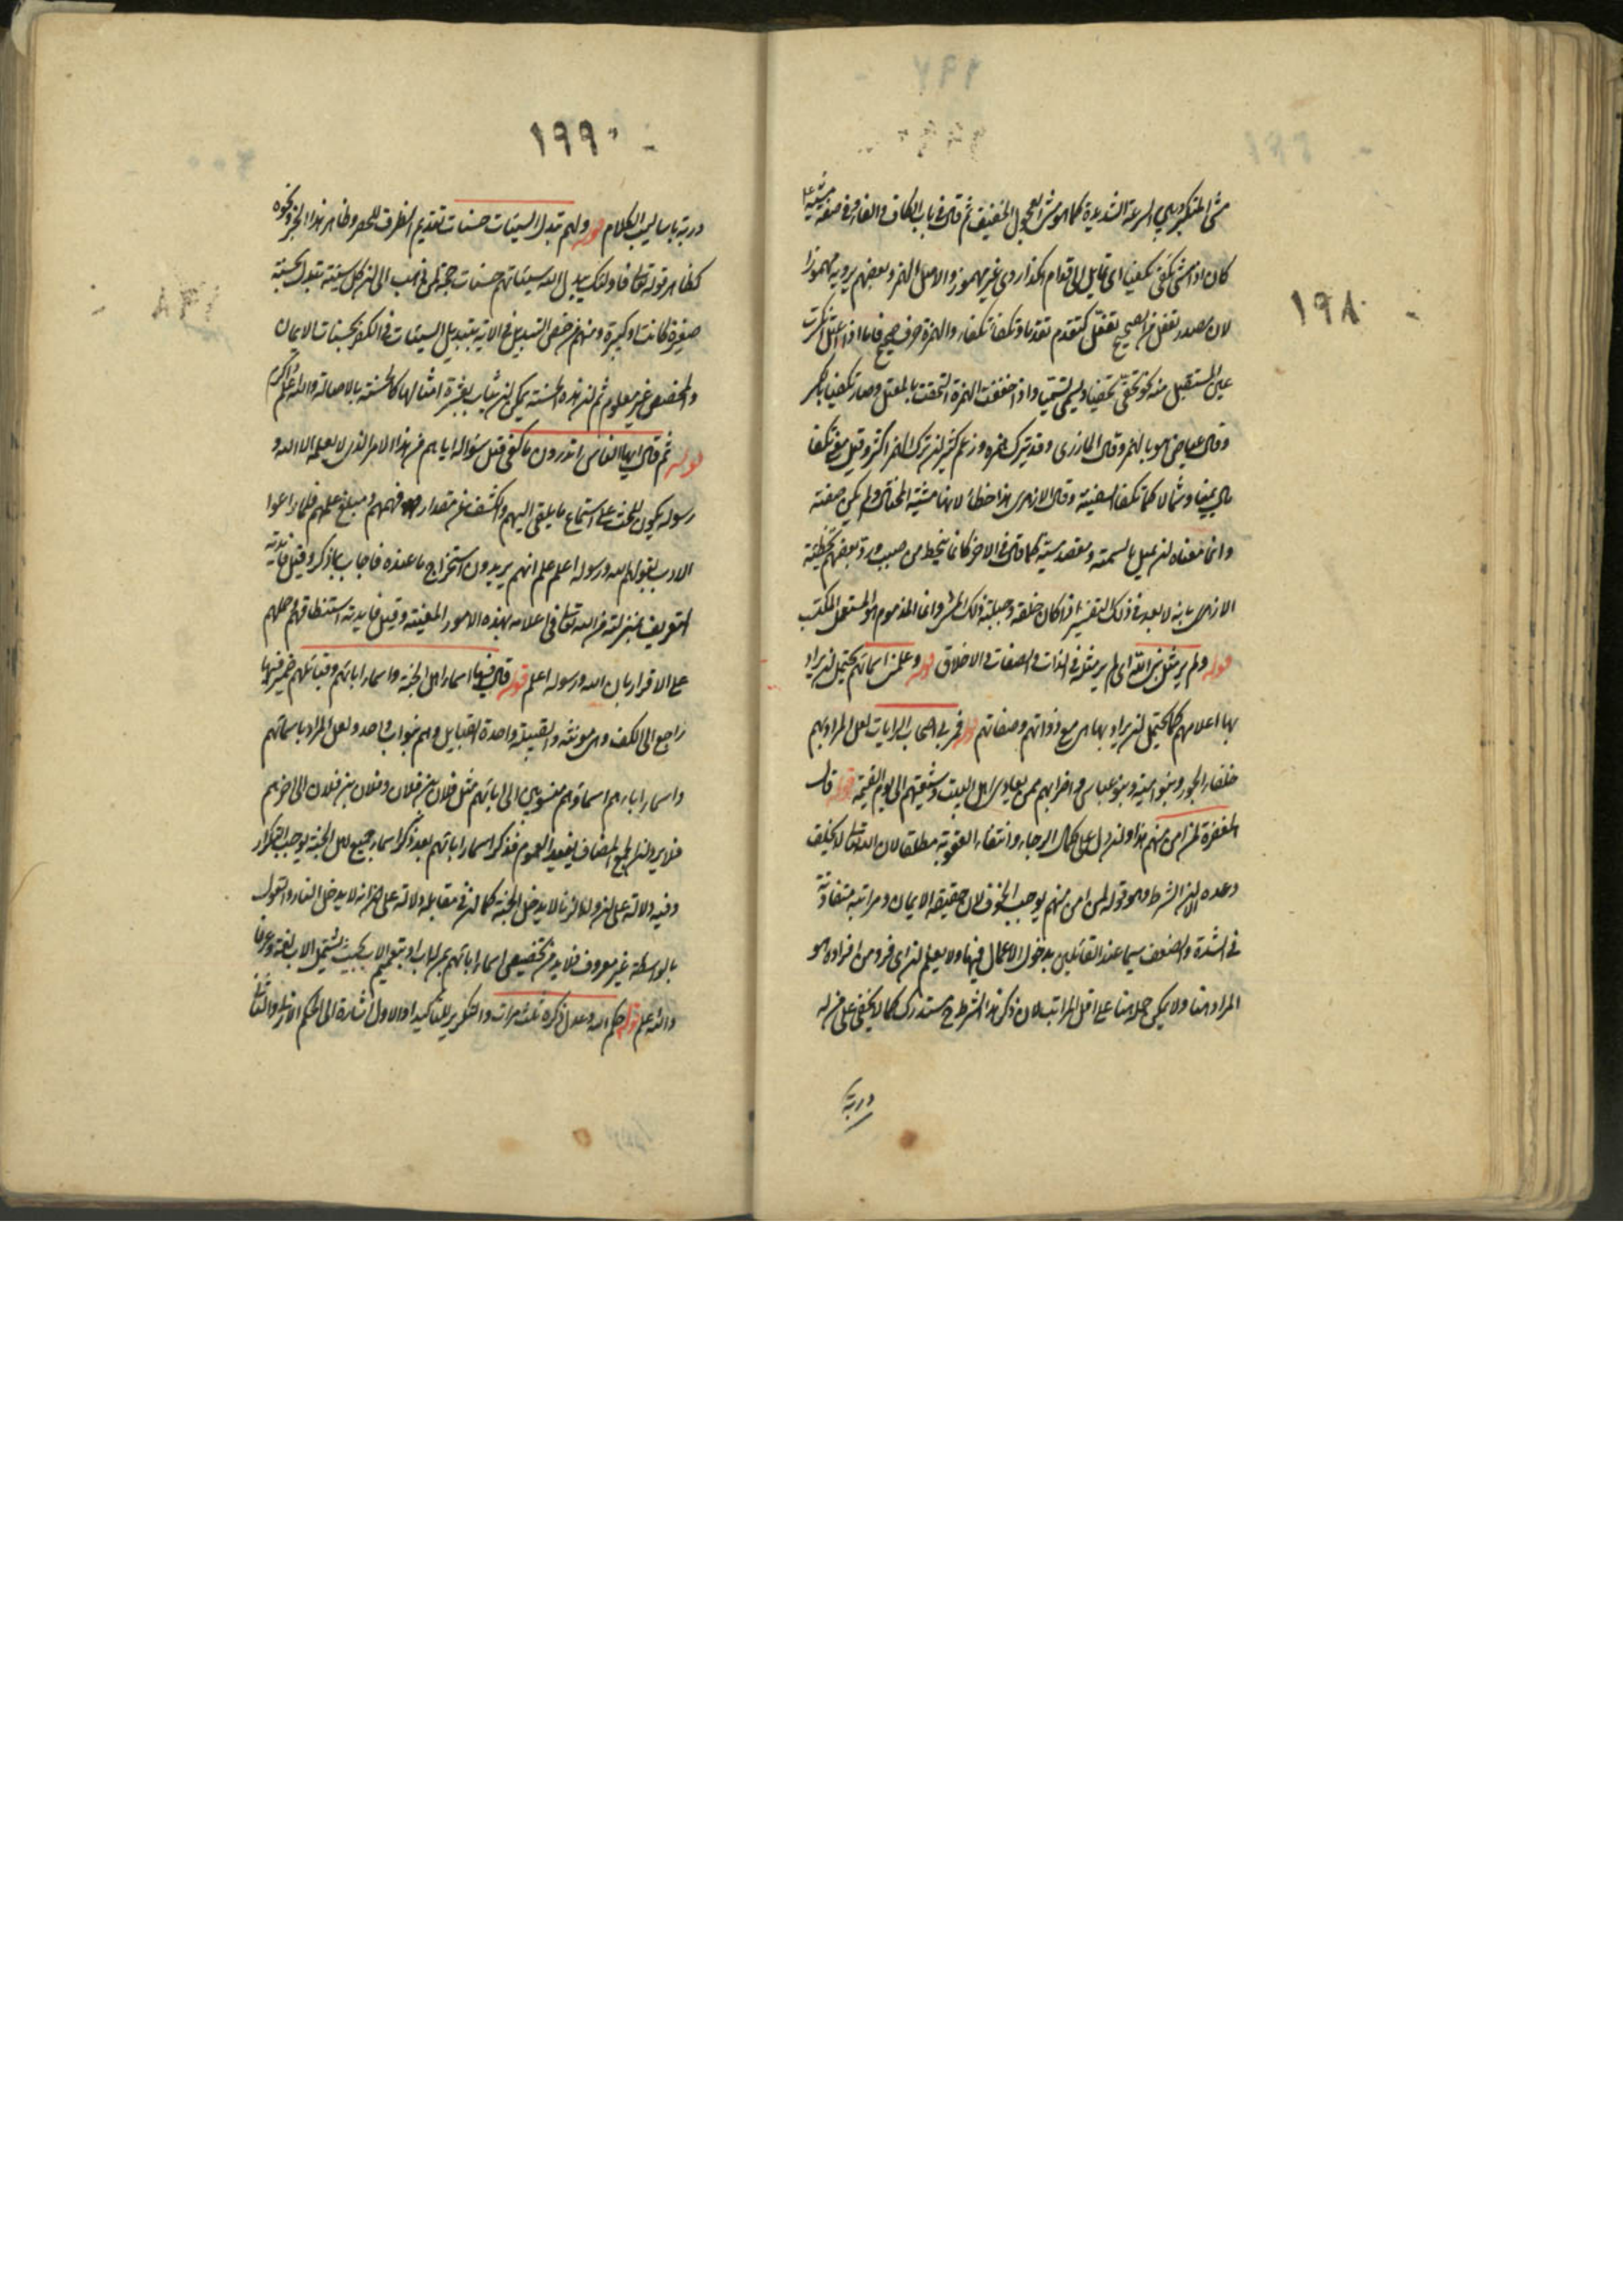 ١٩٨
مشى المتكبر وبين السرعة الشديدة كما هو مشى العجول الخفيف ثم قال في باب الكاف والفاء وفي صفة مشيه ع
كان اذا مشى تكفى تكفيا اى تمايل الى قدام هكذا روى غير مهموز والاصل الهمز وبعضهم يرويه مهموزا
لان مصدر تفعل من الصحيح تفعّل كتقدم تقدما وتكفأ تكفأ والهمزة حرف صحيح فاما اذا اعتل انكسرت
عين المستقبل منه نحو تخفى تخفيا وتسمى تسميا واذا خففت الهمزة التحقت بالمعتل وصار تكفيا بالكسر
وقال عياض هو بالهمز وقال المازرى وقد يترك همزه وزعم كثير ان ترك الهمز اكثر وقيل معنى تكفأ
مال يمينا وشمالا كما تكفأ السفينة وقال الازهرى هذا خطأ لانها مشية المختال ولم يكن صفته
وانما معناه ان يميل بالسمته ومقصد مشيه كما قال في الاخر كانما ينحط من صبب ورد بعضهم تخطئة
الازهرى بانه لا بعد في ذلك التفسير اذا كان خلقه وجبلته ذلك المشى وانما المذموم هو المستعمل المكتسب
قوله ولم ير مثل نبى الله اى لم ير مثله في الذات والصفات والاخلاق قوله وعلمنى اسمائهم يحتمل ان يراد
بها اعلامهم كما يحتمل ان يراد بها هى مع ذواتهم وصفاتهم قوله فمر بى اصحاب الرايات لعل المراد بهم
خلفاء الجور وبنو امية وبنو عباس واضرابهم ممن يعادى اهل البيت وشيعتهم الى يوم القيمة قوله قال
المغفرة لمن امن منهم هذا وان دل على كمال الرجاء وانتفاء العقوبة مطلقا لان الله تعالى لا يخلف
وعده الا ان الشرط وهو قوله لمن امن منهم يوجب الخوف لان حقيقة الايمان ومراتبه متفاوتة
في الشدة والضعف سيما عند القائلين بدخول الاعمال فيها ولا يعلم ان اى فرد من افراده هو
المراد هنا ولا يمكن حمله هنا على اقل المراتب لان ذكر هذا الشرط ح مستدرك كما لا يخفى على من له
دربة
١٩٩
دربة باساليب الكلام قوله ولهم تبدل السيئات حسنات تقديم الظرف للحصر وظاهر هذا الخبر ونحوه
كظاهر قوله تعالى فاولئك يبدل الله سيئاتهم حسنات حجة لمن ذهب الى ان كل سيئة تبدل بحسنة
صغيرة كانت او كبيرة ومنهم من خص التبديل في الاية بتبديل السيئات في الكفر بحسنات الايمان
والمخصص غير معلوم ثم ان هذه الحسنة يمكن ان يثاب بعشرة امثالها كالحسنة بالاصالة والله اعلم
قوله ثم قال ايها الناس اتدرون ما كفى قيل سؤاله اياهم عن هذا الامر الذى لا يعلمه الا الله و
رسوله يكون للحث على استماع ما يلقى اليهم والكشف عن مقدار فهمهم ومبلغ علمهم فلما راعوا
الادب بقولهم الله ورسوله اعلم علم انهم يريدون استخراج ما عنده فاجاب بما ذكر وقيل فائدته
التعريف بمنزلته من الله تعالى في اعلامه بهذه الامور المغيبة وقيل فايدته استنطاقهم وحملهم
على الاقرار بان الله ورسوله اعلم قوله قال فيها اسماء اهل الجنة واسماء ابائهم وقبائلهم ضمير فيها
راجع الى الكف وهى مونثة والقبيلة واحدة القبايل وهم بنو اب واحد ولعل المراد باسمائهم
واسماء ابائهم اسماؤهم منسوبين الى ابائهم مثل فلان بن فلان وفلان بن فلان الى اخرهم
فلا يرد ان الجمع المضاف يفيد العموم فذكر اسماء ابائهم بعد ذكر اسماء جميع اهل الجنة يوجب التكرار
وفيه دلالة على ان ولد الزنا لا يدخل الجنة كما ان في مقابله دلالة على انه لا يدخل النار والقول
بالواسطة غير معروف فلا بد من تخصيص اسماء ابائهم بمن له اب او بتعميم الاب بحيث يشتمل الاب لغة وعرفا
والله اعلم قوله حكم الله وعدل ذكره ثلث مرات والتكرير للتاكيد او الاول اشارة الى الحكم الازلى والثانى